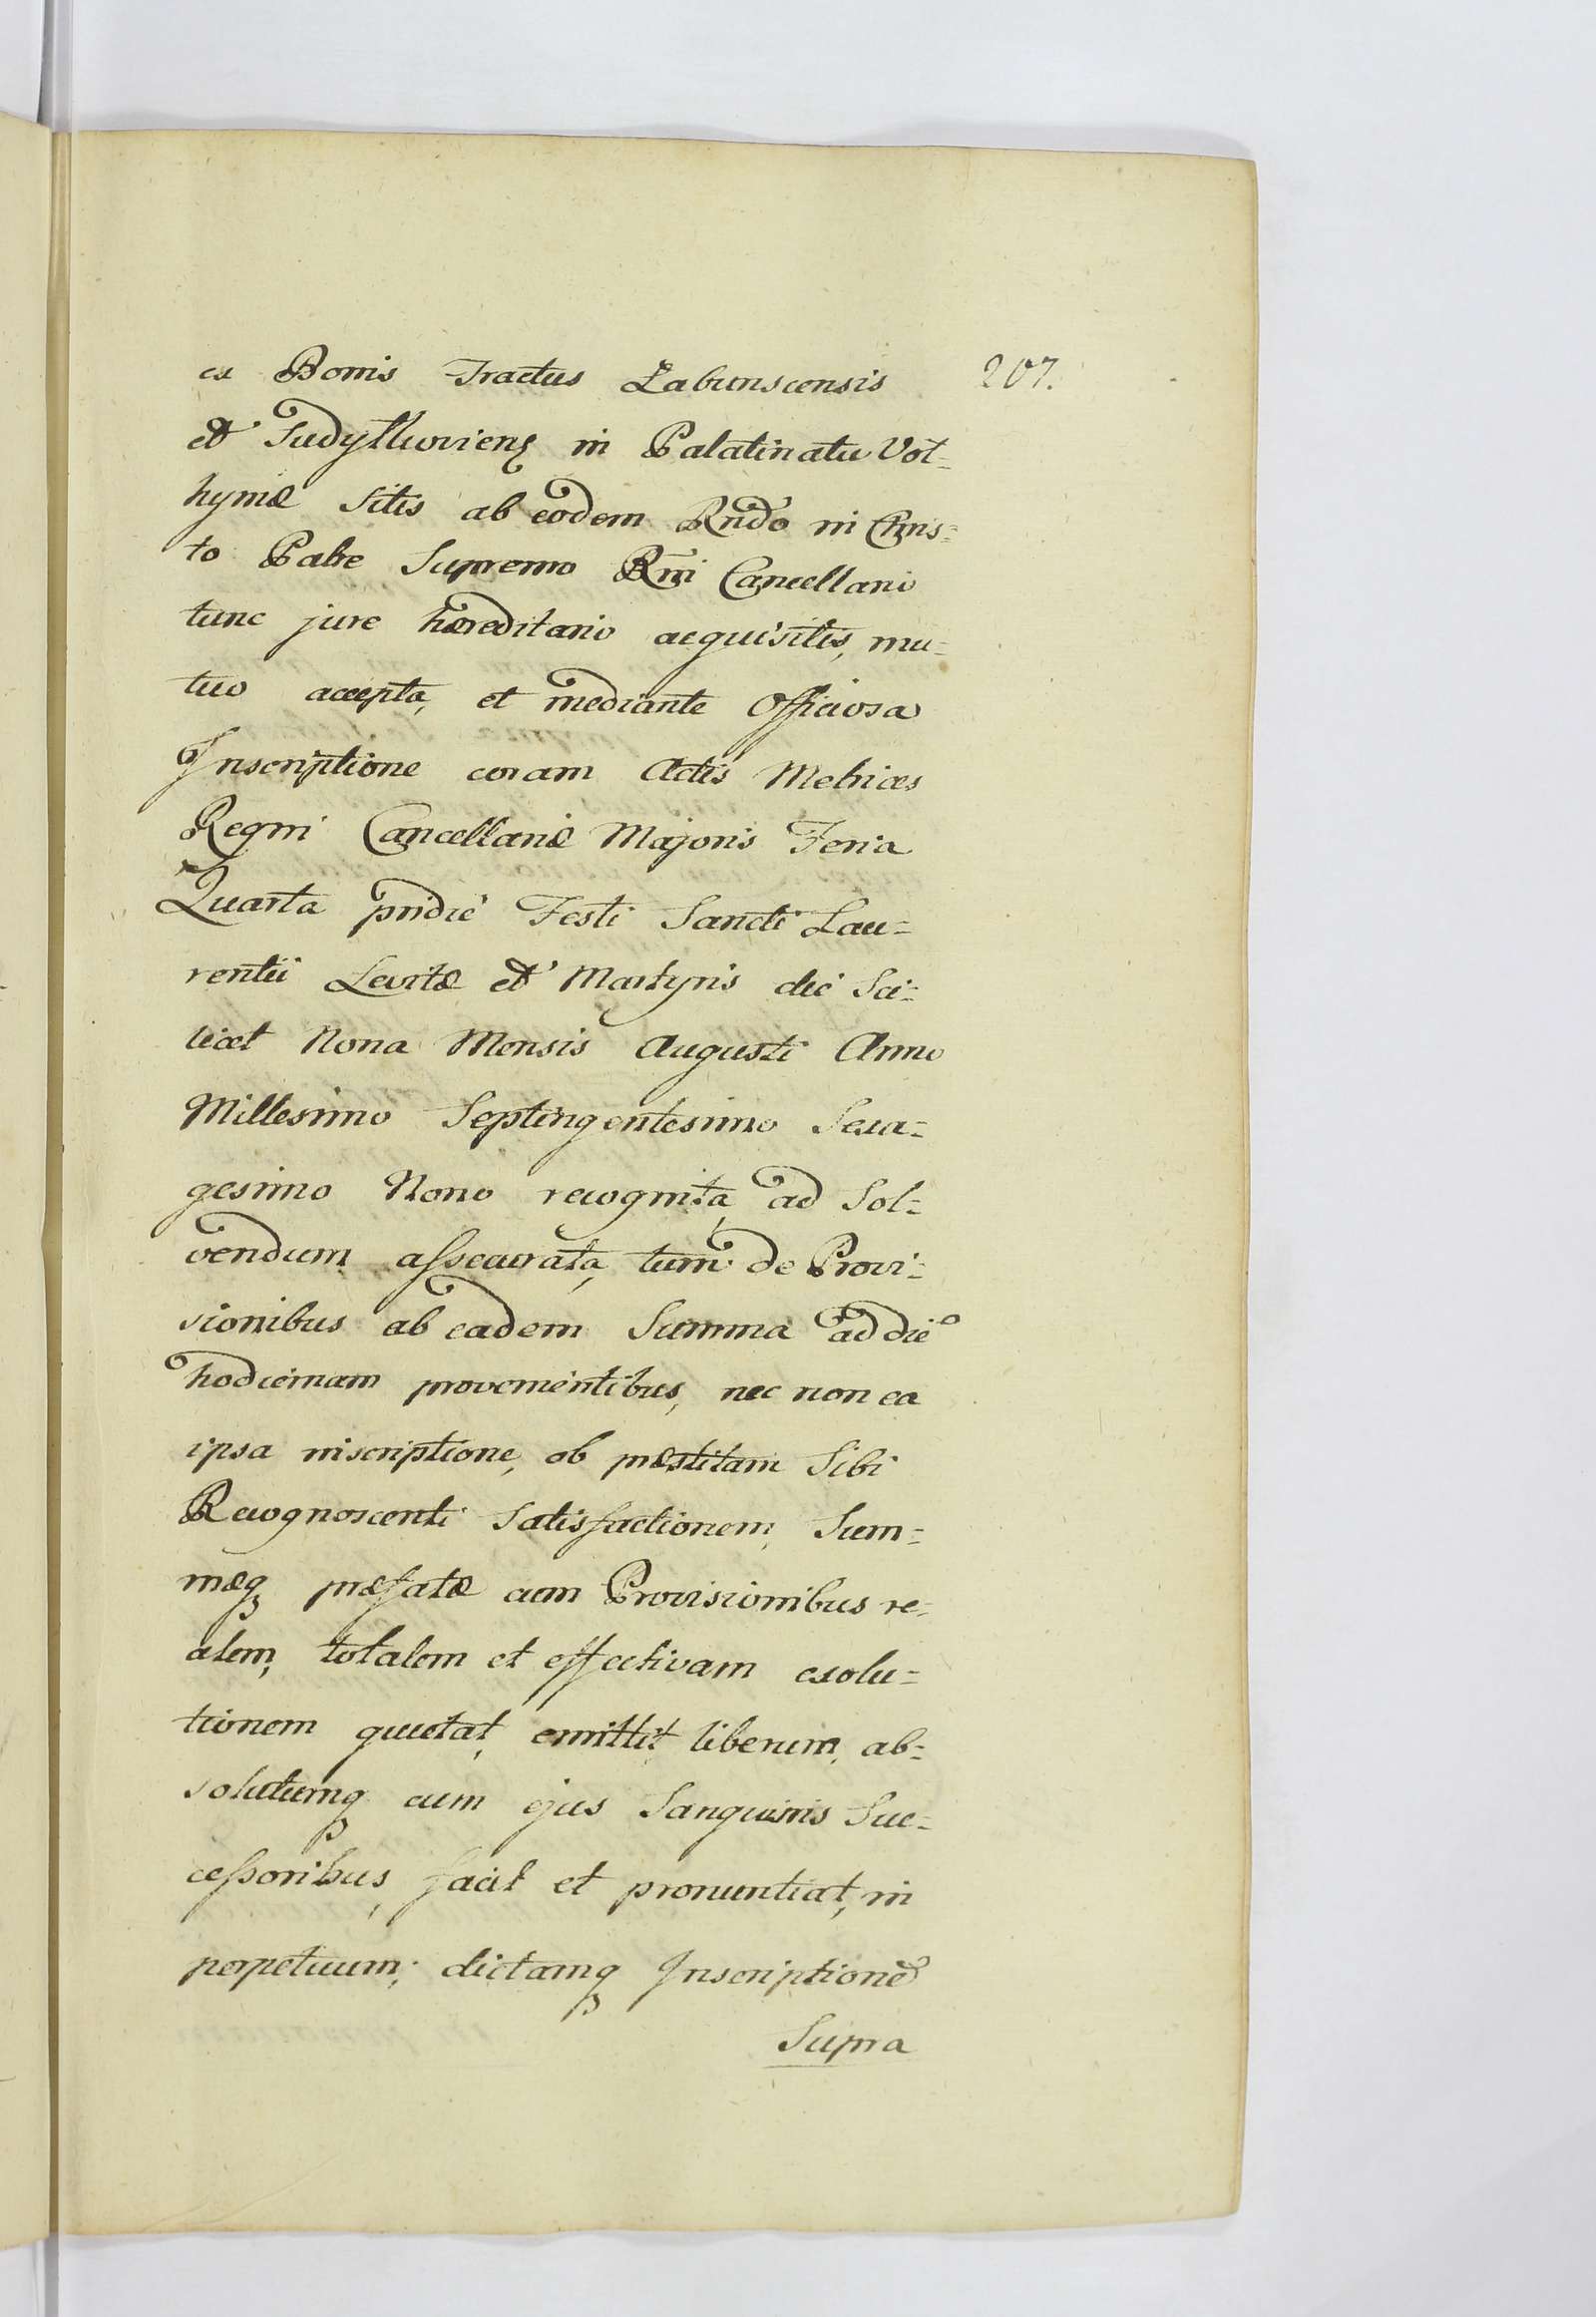 ex Bonis Tractus Łabunscensis 207.
et Sudyłkoviens in Palatinatu Vol=
hyniæ sitis ab eodem Rndo in Chris=
to Patre Supremo Rni Cancellario
tunc jure hæreditario acquisitis, mu=
tuo accepta, et mediante Officiosa
Inscriptione coram Actis Metrices
Regni Cancellariæ Majoris Feria
Quarta pridie Festi Sancti Lau=
rentii Levitæ et Martyris die Sci=
licet Nona Mensis Augusti Anno
Millesimo Septingentesimo Sexa=
gesimo Nono recognita, ad Sol=
vendum assecurata, tum de Provi=
sionibus ab eadem Summa ad die
hodiernam provenientibus, nec non ea
ipsa inscriptione, ob præstitam Sibi
Recognoscenti Satisfactionem, Sum=
mæq præfatæ cum Provisionibus re=
alem, totalem et effectivam exolu=
tionem quietat, emittit liberum, ab=
solutumq cum ejus Sanguinis Suc=
cessoribus, facit et pronuntiat, in
perpetuum; dictamq Inscriptione
Supra